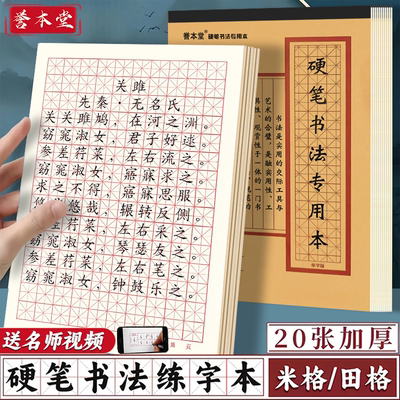 誉本堂
关雎
先秦·无名氏
关关雎鸠，在河之洲。
窈窕淑女，君子好逑。
参差荇菜，左右流之。
窈窕淑女，寤寐求之。
求之不得，寤寐思服。
悠哉悠哉，辗转反侧。
参差荇菜，左右采之。
窈窕淑女，琴瑟友之。
参差荇菜，左右芼之。
窈窕淑女，钟鼓乐之。
第 页
誉本堂 硬笔书法专用本
硬笔书法专用本
书法是实用的交际工具与
艺术的合璧，是融实用性、工
具性、观赏性于一体的一门书
送名师视频
20张加厚
硬笔书法练字本
米格/田格